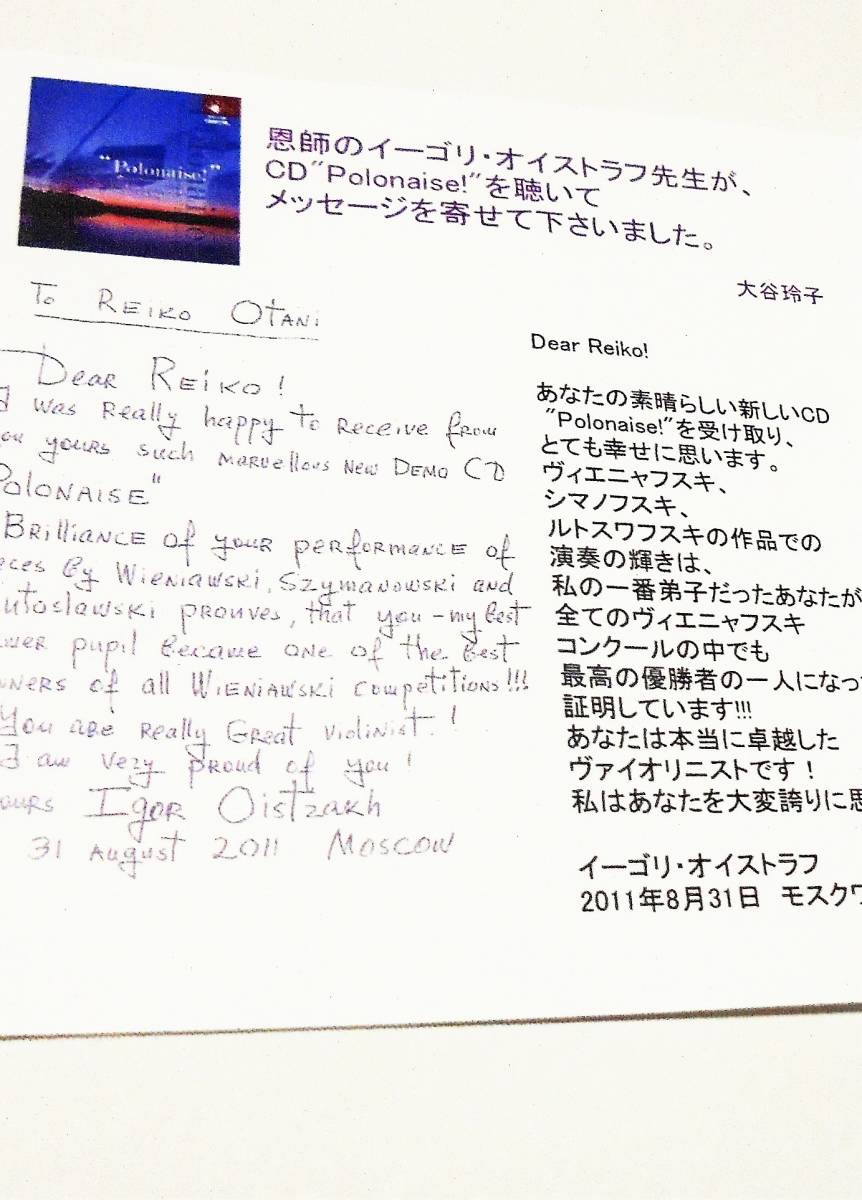 "Polonaise!"
恩師のイーゴリ・オイストラフ先生が、
CD"Polonaise!"を聴いて
メッセージを寄せて下さいました。
大谷玲子
To REIKO OTANI
DEAR REIKO!
I WAS REALLY happy to RECEIVE from
YOURS SUCH MARVELLOUS NEW DEMO CD
POLONAISE"
BRILLIANCE of YOUR PERFORMANCE of
By WIENIAWSKI, SZYMANOWSKI and
PROUVES, that you – my best
pupil BECAME ONE of the BEST
of all WIENIAWSKI COMPETITIONS!!!
YOU ARE REALLY GREAT VIOLINIST!
I am very PROUD of you!
IGOR OISTRAKH
31 AUGUST 2011 MOSCOW
Dear Reiko!
あなたの素晴らしい新しいCD
"Polonaise!"を受け取り、
とても幸せに思います。
ヴィエニャフスキ、
シマノフスキ、
ルトスワフスキの作品での
演奏の輝きは、
私の一番弟子だったあなたが
全てのヴィエニャフスキ
コンクールの中でも
最高の優勝者の一人になっ
証明しています!!!
あなたは本当に卓越した
ヴァイオリニストです！
私はあなたを大変誇りに思
イーゴリ・オイストラフ
2011年8月31日 モスクワ